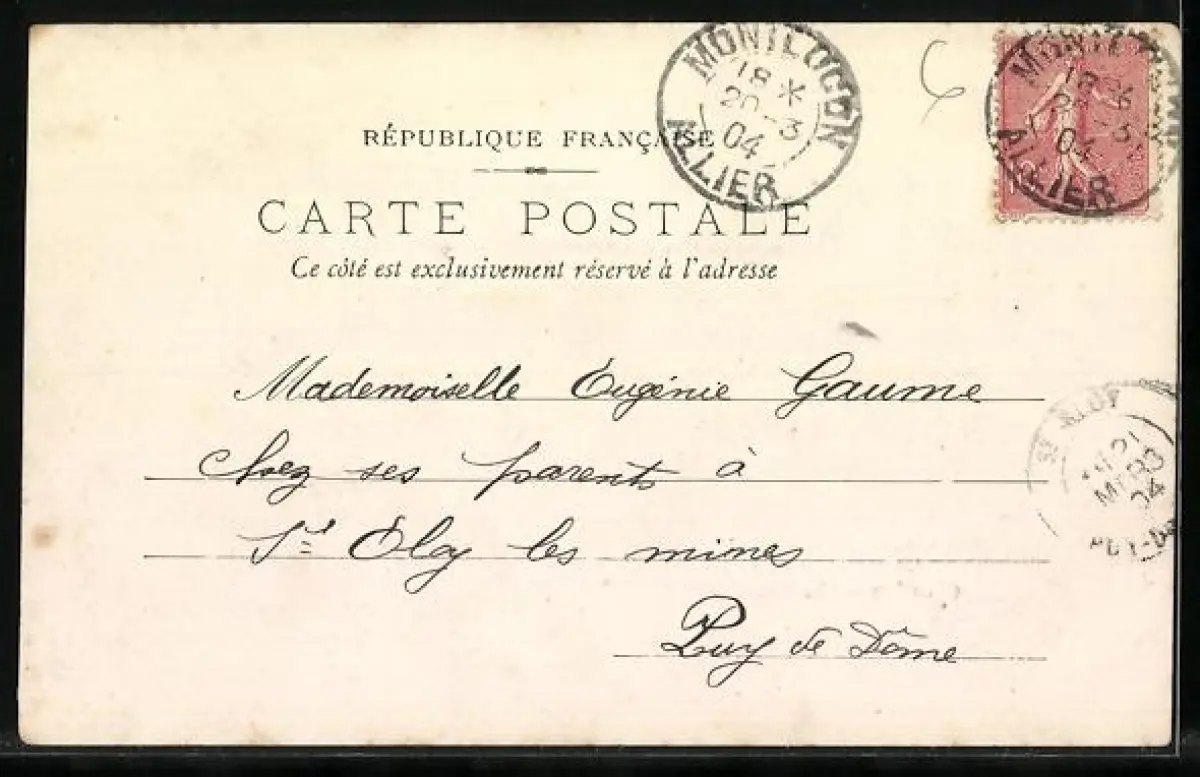 MONTLUCON
18 *
20 -3
04
ALLIER
RÉPUBLIQUE FRANÇAISE
CARTE POSTALE
Ce côté est exclusivement réservé à l'adresse
Mademoiselle Eugénie Gaume
Chez ses parents à
St Eloy les mines
Puy de Dôme
MONTLUCON
18 *
20 -3
04
ALLIER
ST ELOY
21
MARS
04
PUY-DE